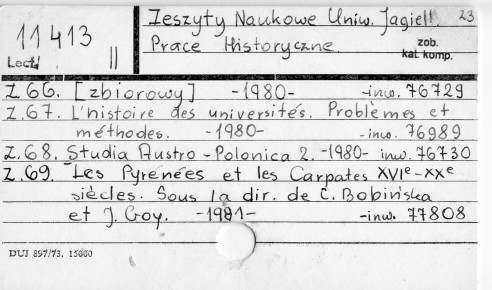 Zeszyty Naukowe Uniw. Jagiell. 23
11413 II
Lect.
Prace Historyczne
zob.
kat. komp.
Z.66. [zbiorowy] -1980- -inw. 76729
Z.67. L'histoire des universités. Problèmes et
méthodes. -1980- -inw. 76989
Z.68. Studia Austro-Polonica 2. -1980- inw. 76730
Z.69. Les Pyrénées et les Carpates XVIe-XXe
siècles. Sous la dir. de C. Bobińska
et J. Goy. -1981- -inw. 77808
DUJ 897/73. 15000